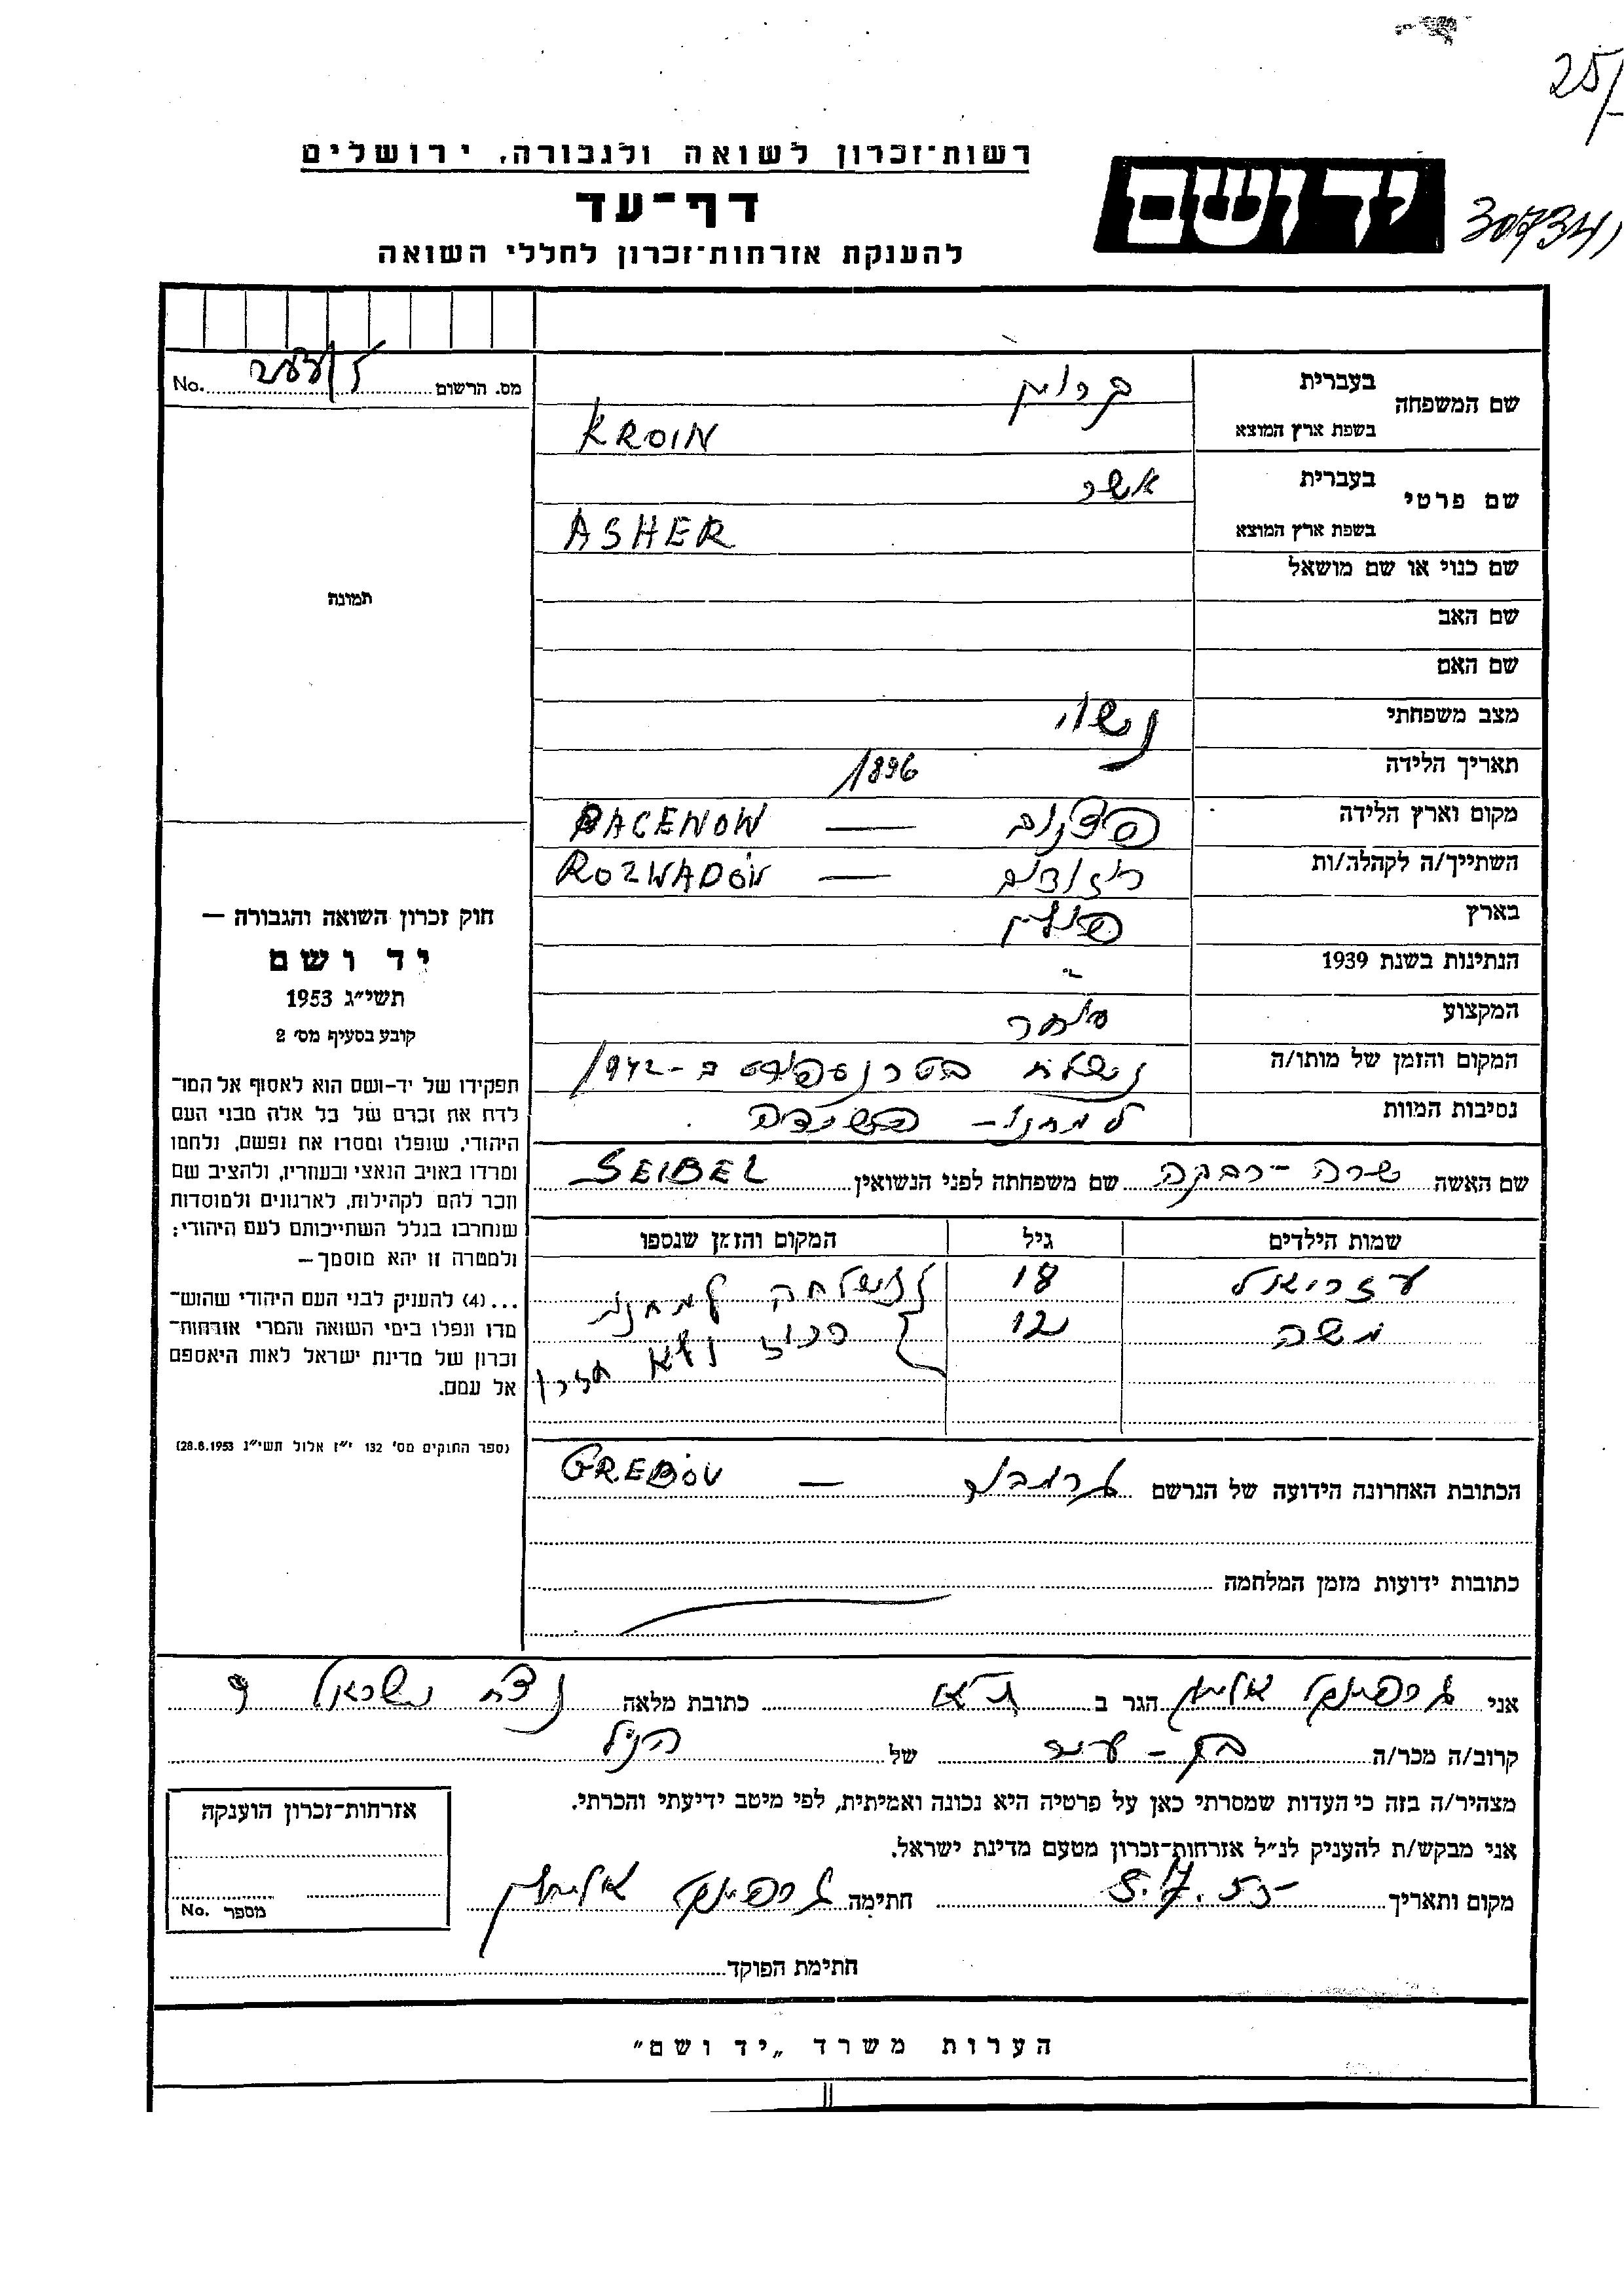 25/-
רשות־זכרון לשואה ולגבורה, ירושלים
דף־עד
להענקת אזרחות־זכרון לחללי השואה
יד ושם
מס. הרשום No.
שם המשפחה
בעברית קרוין
בשפת ארץ המוצא KROIN
שם פרטי
בעברית אשר
בשפת ארץ המוצא ASHER
שם כנוי או שם מושאל
שם האב
שם האם
מצב משפחתי נשוי
תאריך הלידה 1896
מקום וארץ הלידה — BACENOW
השתייך/ה לקהלה/ות — ROZWADÓW
בארץ פולין
הנתינות בשנת 1939 "
המקצוע סוחר
המקום והזמן של מותו/ה נשלח בטרנספורט ב-1942
נסיבות המוות למחנה - השמדה
שם האשה שרה-רבקה שם משפחתה לפני הנשואין SEIBEL
שמות הילדים גיל המקום והזמן שנספו
עזריאל 18 למחנה
משה 12 ולא חזרו
הכתובת האחרונה הידועה של הנרשם — GREBÓW
כתובות ידועות מזמן המלחמה
אני הגר ב ת"א כתובת מלאה נצח ישראל
קרוב/ה מכר/ה בן-עיר של הנ"ל
מצהיר/ה בזה כי העדות שמסרתי כאן על פרטיה היא נכונה ואמיתית, לפי מיטב ידיעתי והכרתי.
אני מבקש/ת להעניק לנ"ל אזרחות־זכרון מטעם מדינת ישראל.
מקום ותאריך 8.7.55 חתימה
חתימת הפוקד
תמונה
חוק זכרון השואה והגבורה —
יד ושם
תשי"ג 1953
קובע בסעיף מס' 2
תפקידו של יד-ושם הוא לאסוף אל המו־
לדת את זכרם של כל אלה מבני העם
היהודי, שנפלו ומסרו את נפשם, נלחמו
ומרדו באויב הנאצי ובעוזריו, ולהציב שם
וזכר להם לקהילות, לארגונים ולמוסדות
שנחרבו בגלל השתייכותם לעם היהודי;
ולמטרה זו יהא מוסמך—
...(4) להעניק לבני העם היהודי שהוש־
מדו ונפלו בימי השואה והמרי אזרחות־
זכרון של מדינת ישראל לאות היאספם
אל עמם.
(ספר החוקים מס' 132 י"ז אלול תשי"ג 28.8.1953)
אזרחות־זכרון הוענקה
מספר No.
הערות משרד „יד ושם"